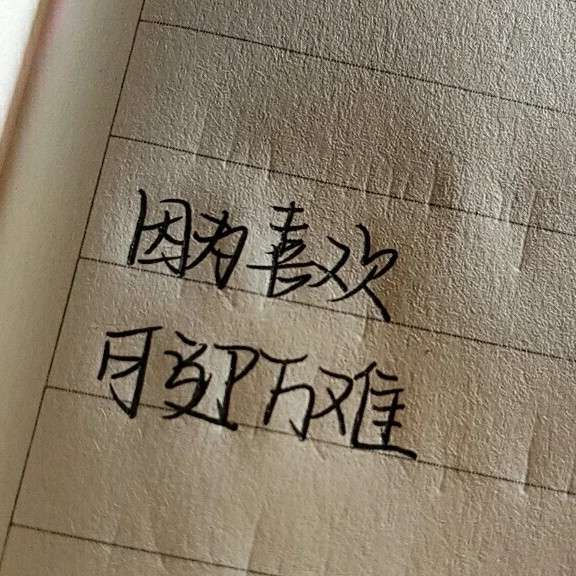 因为喜欢
可迎万难